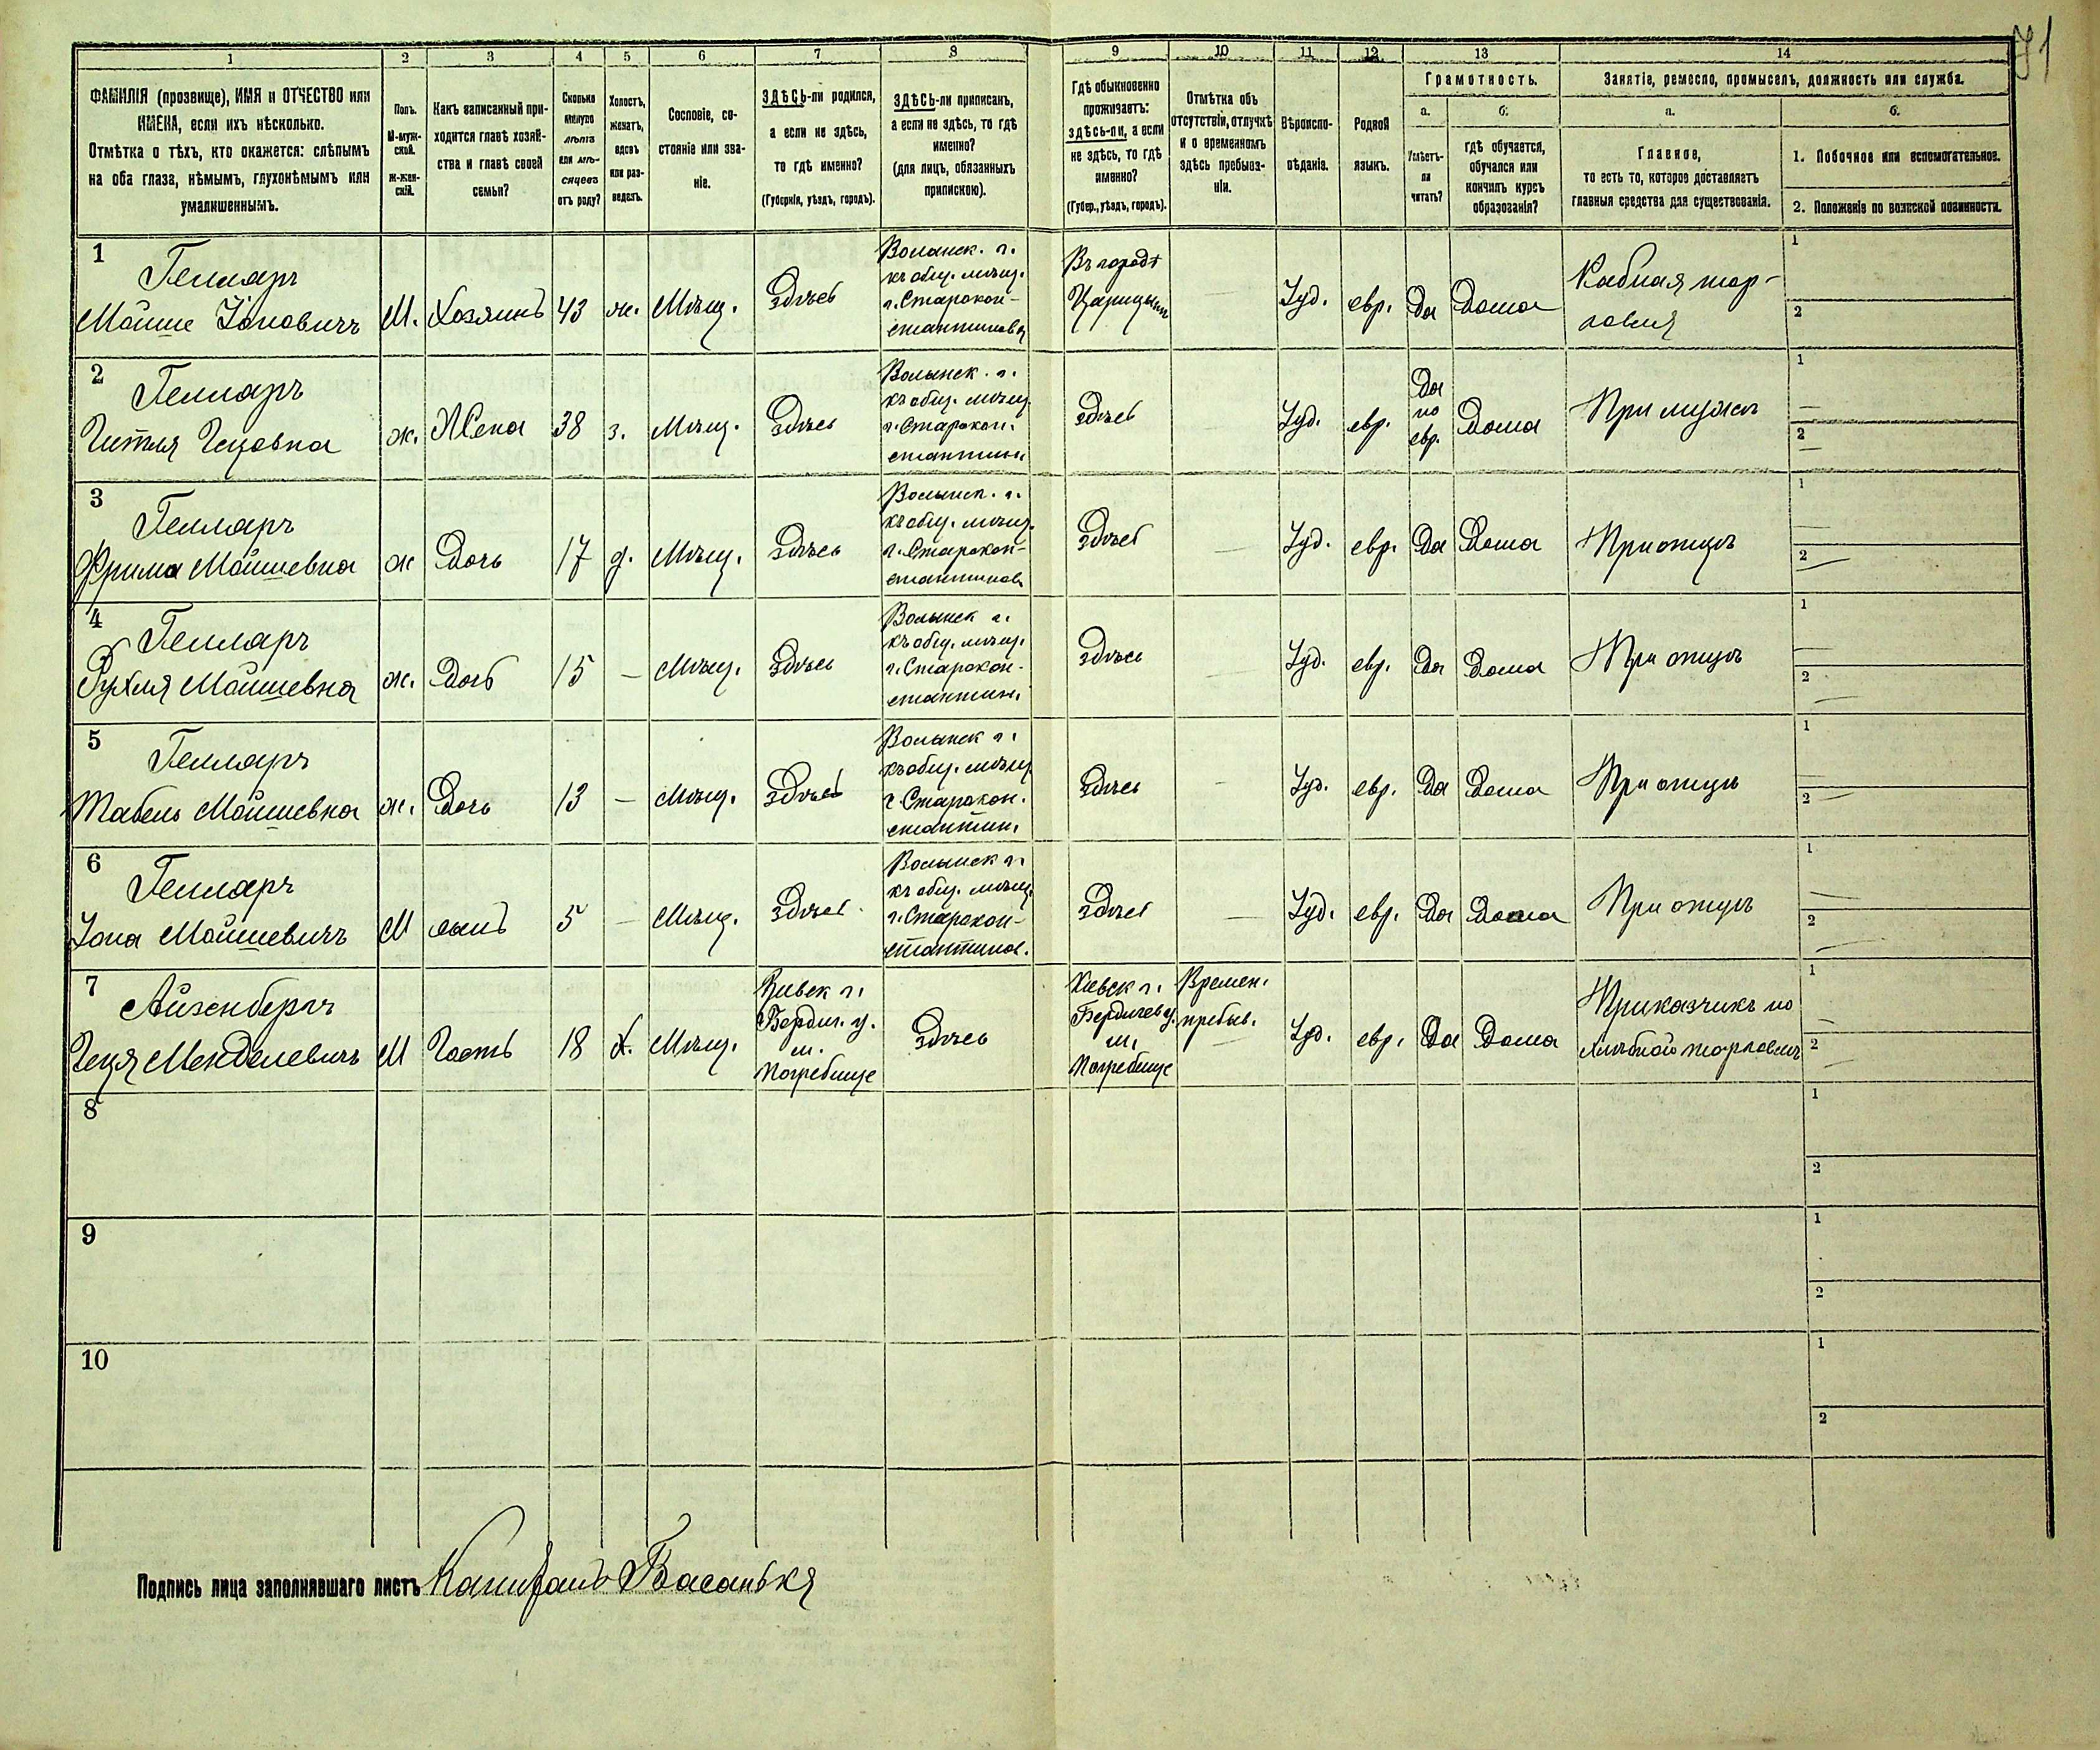 71
1 2 3 4 5 6 7 8 9 10 11 12 13 14
ФАМИЛІЯ (прозвище), ИМЯ и ОТЧЕСТВО или
ИМЕНА, если ихъ нѣсколько.
Отмѣтка о тѣхъ, кто окажется: слѣпымъ
на оба глаза, нѣмымъ, глухонѣмымъ или
умалишеннымъ.
Полъ.
М-муж-
ской.
ж-жен-
скій.
Какъ записанный при-
ходится главѣ хозяй-
ства и главѣ своей
семьи?
Сколько
минуло
лѣтъ
или мѣ-
сяцевъ
отъ роду?
Холостъ,
женатъ,
вдовъ
или раз-
веденъ.
Сословіе, со-
стояніе или зва-
ніе.
ЗДѢСЬ-ли родился,
а если не здѣсь,
то гдѣ именно?
(Губернія, уѣздъ, городъ).
ЗДѢСЬ-ли приписанъ,
а если не здѣсь, то гдѣ
именно?
(для лицъ, обязанныхъ
припискою).
Гдѣ обыкновенно
проживаетъ:
здѣсь-ли, а если
не здѣсь, то гдѣ
именно?
(Губер., уѣздъ, городъ).
Отмѣтка объ
отсутствіи, отлучкѣ
и о временномъ
здѣсь пребыва-
ніи.
Вѣроиспо-
вѣданіе.
Родной
языкъ.
Грамотность.
а.
Умѣетъ-
ли
читать?
б.
гдѣ обучается,
обучался или
кончилъ курсъ
образованія?
Занятіе, ремесло, промыселъ, должность или служба.
а.
Главное,
то есть то, которое доставляетъ
главныя средства для существованія.
б.
1. Побочное или вспомогательное.
2. Положеніе по воинской повинности.
1
Гелларъ
Мойше Іоновичъ
М.
Хозяинъ
43
ж.
Мѣщ.
Здѣсь
Волынск. г.
къ общ. мѣщ.
г. Старокон-
стантинова
Въ городѣ
Царицынѣ
Іуд.
евр.
Да
Дома
тор-
говля
1
2
2
Гелларъ
Гитля Гецовна
ж.
Жена
38
з.
Мѣщ.
Здѣсь
Волынск. г.
къ общ. мѣщ.
г. Старокон.
стантин
здѣсь
Іуд.
евр.
Да
по
евр.
Дома
При мужѣ
1
2
3
Гелларъ
Фрима Мойшевна
ж
Дочь
17
д.
Мѣщ.
Здѣсь
Волынск. г.
къ общ. мѣщ.
г. Старокон-
стантинов
Здѣсь
Іуд.
евр.
Да
Дома
При отцѣ
1
2
4
Гелларъ
Рухля Мойшевна
ж.
Дочь
15
–
Мѣщ.
Здѣсь
Волынск г.
къ общ. мѣщ.
г. Старокон-
стантин.
Здѣсь
Іуд.
евр.
Да
Дома
При отцѣ
1
2
5
Гелларъ
Табель Мойшевна
ж.
Дочь
13
–
Мѣщ.
Здѣсь
Волынск г.
къ общ. мѣщ.
г. Старокон.
стантин.
Здѣсь
Іуд.
евр.
Да
Дома
При отцѣ
1
2
6
Гелларъ
Іона Мойшевичъ
М
сынъ
5
–
Мѣщ.
Здѣсь
Волынск г.
къ общ. мѣщ.
г. Старокон-
стантинов.
Здѣсь
Іуд.
евр.
Да
Дома
При отцѣ
1
2
7
Айзенбергъ
Геця Менделевичъ
М
Гость
18
х.
Мѣщ.
Кіевск г.
Бердич. у.
м.
Погребище
Здѣсь
Кіевск г.
Бердичев у.
м.
Погребище
Времен.
пребыв.
Іуд.
евр.
Да
Дома
Приказчикъ по
хлѣбной торговлѣ
1
2
8
1
2
9
1
2
10
1
2
Подпись лица заполнявшаго листъ